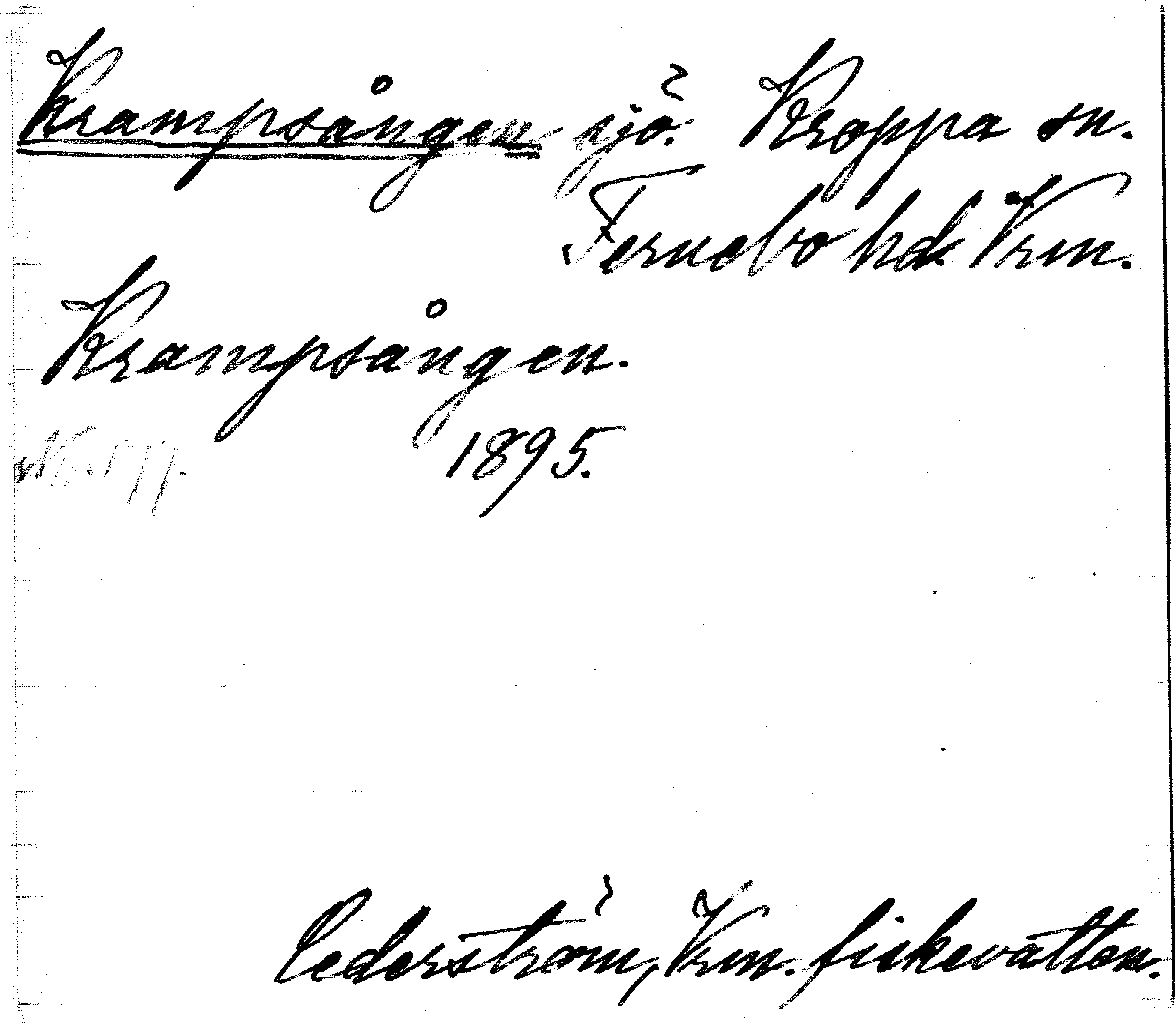 Krampsången sjö. Kroppa sn.
Fernebo hd. Vrm.
Krampsången.
1895.
Cederström, Vrm. fiskevatten.